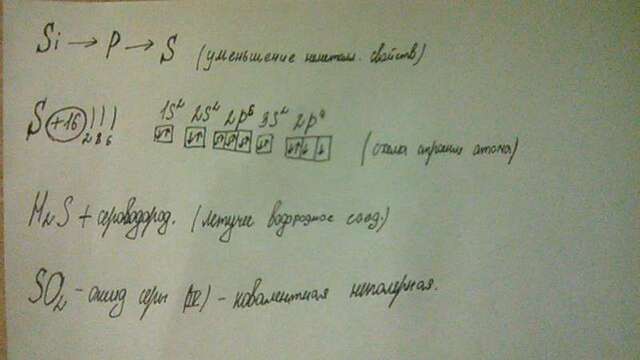 Si → P → S (уменьшение неметалл. свойств)
S +16 ))) 2 8 6 1s² 2s² 2p⁶ 3s² 2p⁴ (схема строения атома)
H₂S + сероводород. (летучее водородное соед.)
SO₂ - оксид серы (IV) - ковалентная неполерная.